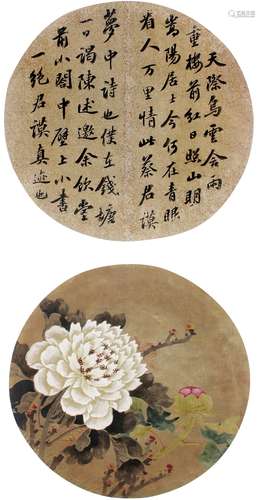 天際烏雲含雨
重樓前紅日照山明
嵩陽居士今何在青眼
看人萬里情此蔡君謨
夢中詩也僕在錢塘
一日謁陳述邀余飲堂
前小閣中壁上小書
一絕君謨真迹也